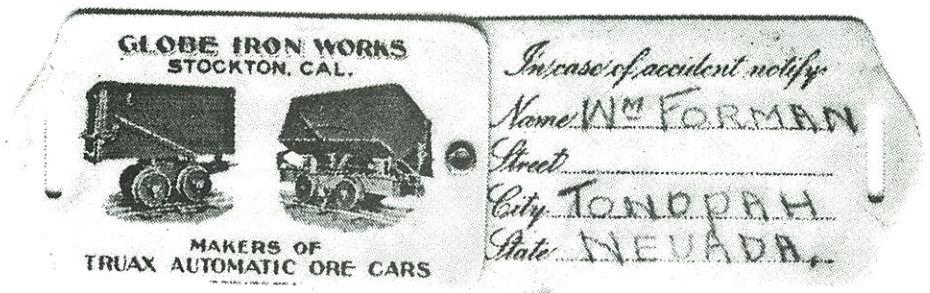 GLOBE IRON WORKS
STOCKTON, CAL.
MAKERS OF
TRUAX AUTOMATIC ORE CARS
In case of accident notify
Name WM FORMAN
Street
City TONOPAH
State NEVADA,